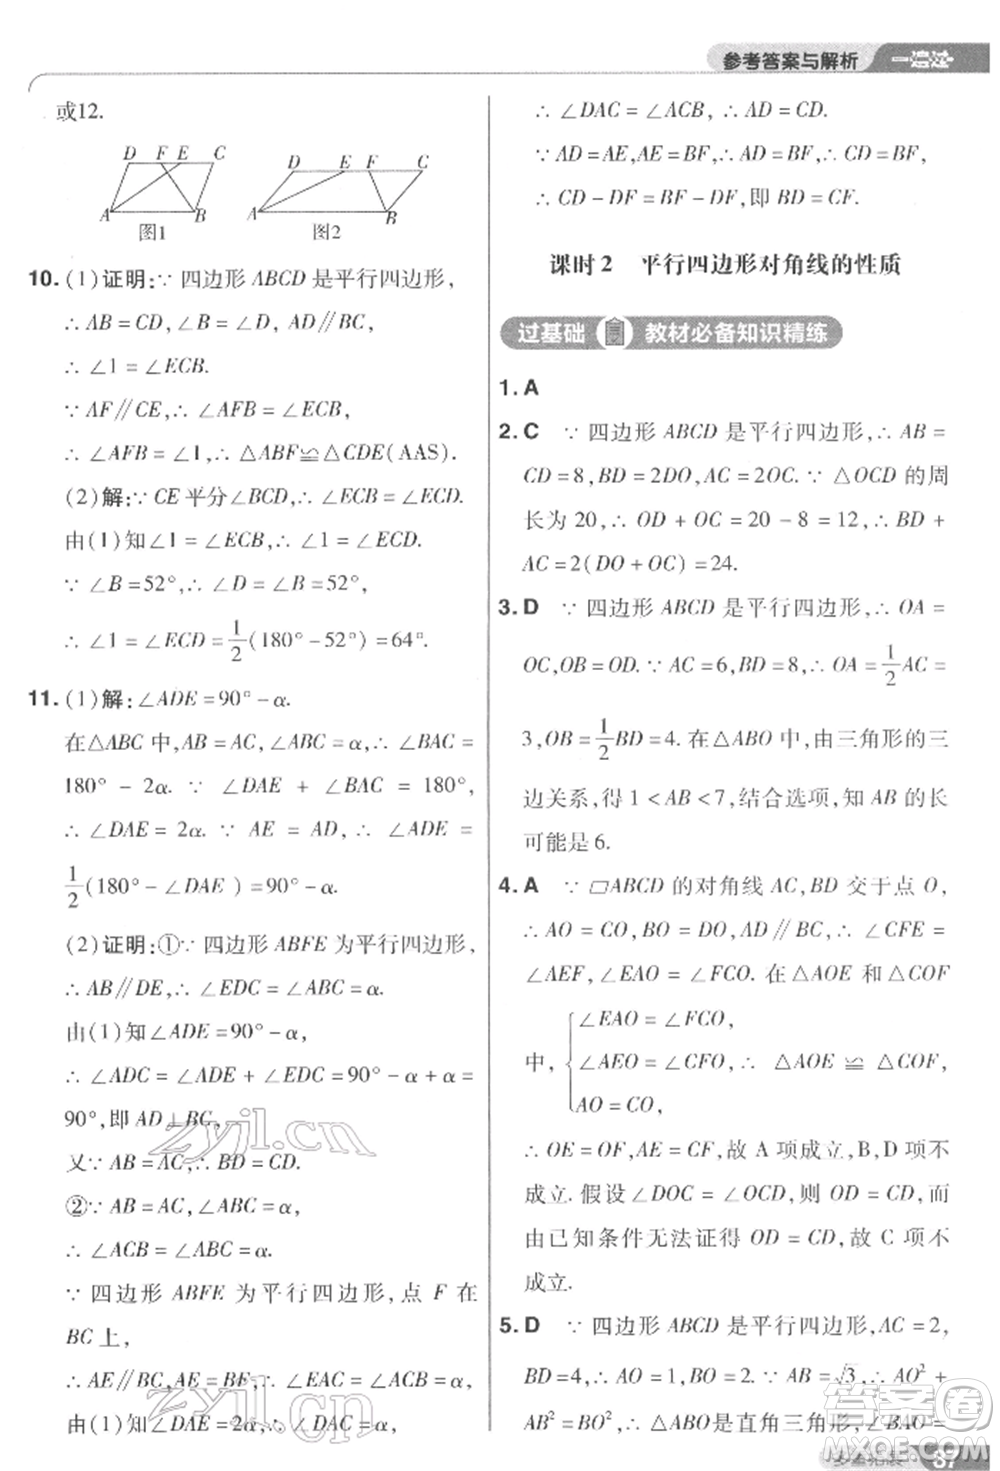 参考答案与解析 一遍过
或12.
D F E C
A B
图1
D E F C
A B
图2
10. (1)证明:∵ 四边形 ABCD 是平行四边形,
∴ AB=CD,∠B=∠D, AD∥BC,
∴ ∠1=∠ECB.
∵ AF∥CE,∴ ∠AFB=∠ECB,
∴ ∠AFB=∠1,∴ △ABF≌△CDE(AAS).
(2)解:∵ CE 平分∠BCD,∴ ∠ECB=∠ECD.
由(1)知∠1=∠ECB,∴ ∠1=∠ECD.
∵ ∠B=52°,∴ ∠D=∠B=52°,
∴ ∠1=∠ECD=1/2(180°-52°)=64°.
11. (1)解:∠ADE=90°-α.
在△ABC 中,AB=AC,∠ABC=α,∴ ∠BAC=
180°-2α. ∵ ∠DAE + ∠BAC=180°,
∴ ∠DAE=2α. ∵ AE = AD,∴ ∠ADE =
1/2(180°-∠DAE)=90°-α.
(2)证明:①∵ 四边形 ABFE 为平行四边形,
∴ AB∥DE,∴ ∠EDC=∠ABC=α.
由(1)知∠ADE=90°-α,
∴ ∠ADC=∠ADE+∠EDC=90°-α+α=
90°,即 AD⊥BC,
又∵ AB=AC,∴ BD=CD.
②∵ AB=AC,∠ABC=α,
∴ ∠ACB=∠ABC=α.
∵ 四边形 ABFE 为平行四边形,点 F 在
BC上,
∴ AE∥BC,AE=BF,∴ ∠EAC=∠ACB=α.
由(1)知∠DAE=2α,∴ ∠DAC=α,
∴ ∠DAC=∠ACB,∴ AD=CD.
∵ AD=AE,AE=BF,∴ AD=BF,∴ CD=BF,
∴ CD-DF=BF-DF,即 BD=CF.
课时2 平行四边形对角线的性质
过基础 教材必备知识精练
1. A
2. C ∵ 四边形 ABCD 是平行四边形,∴ AB=
CD=8,BD=2DO,AC=2OC. ∵ △OCD 的周
长为 20,∴ OD + OC=20-8=12,∴ BD +
AC=2(DO+OC)=24.
3. D ∵ 四边形 ABCD 是平行四边形,∴ OA=
OC,OB=OD. ∵ AC=6,BD=8,∴ OA=1/2AC=
3,OB=1/2BD=4. 在△ABO 中,由三角形的三
边关系,得 1<AB<7,结合选项,知 AB 的长
可能是 6.
4. A ∵ ▱ABCD 的对角线 AC,BD 交于点 O,
∴ AO=CO,BO=DO,AD∥BC,∴ ∠CFE=
∠AEF,∠EAO=∠FCO. 在△AOE 和△COF
∠EAO=∠FCO,
中,∠AEO=∠CFO,∴ △AOE ≌ △COF,
AO=CO,
∴ OE=OF,AE=CF,故 A 项成立,B,D 项不
成立. 假设∠DOC=∠OCD,则 OD=CD,而
由已知条件无法证得 OD=CD,故 C 项不
成立.
5. D ∵ 四边形 ABCD 是平行四边形,AC=2,
BD=4,∴ AO=1,BO=2. ∵ AB=√3,∴ AO²+
AB²=BO²,∴ △ABO 是直角三角形,∴ ∠BAO=
zyjl.cn
zyjl.cn
答案卷
MXQE.COM
37